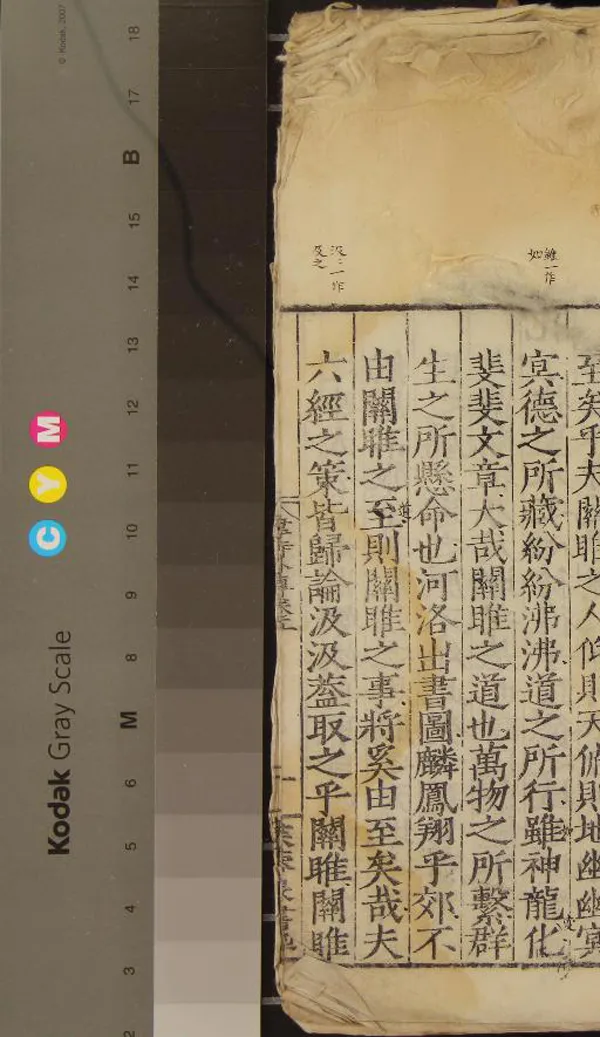 至矣乎夫關雎之人仰則天俯則地幽幽冥
冥德之所藏紛紛沸沸道之所行雖神龍化
斐斐文章大哉關雎之道也萬物之所繫群
生之所懸命也河洛出書圖麟鳳翔乎郊不
由關雎之至則關雎之事將奚由至矣哉夫
六經之策皆歸論汲汲蓋取之乎關雎關雎
雖一作
如
汲汲一作
及之
韓詩外傳卷五
© Kodak, 2007
Kodak Gray Scale
C Y M
18
17
B
15
14
13
12
11
10
9
8
M
6
5
4
3
2